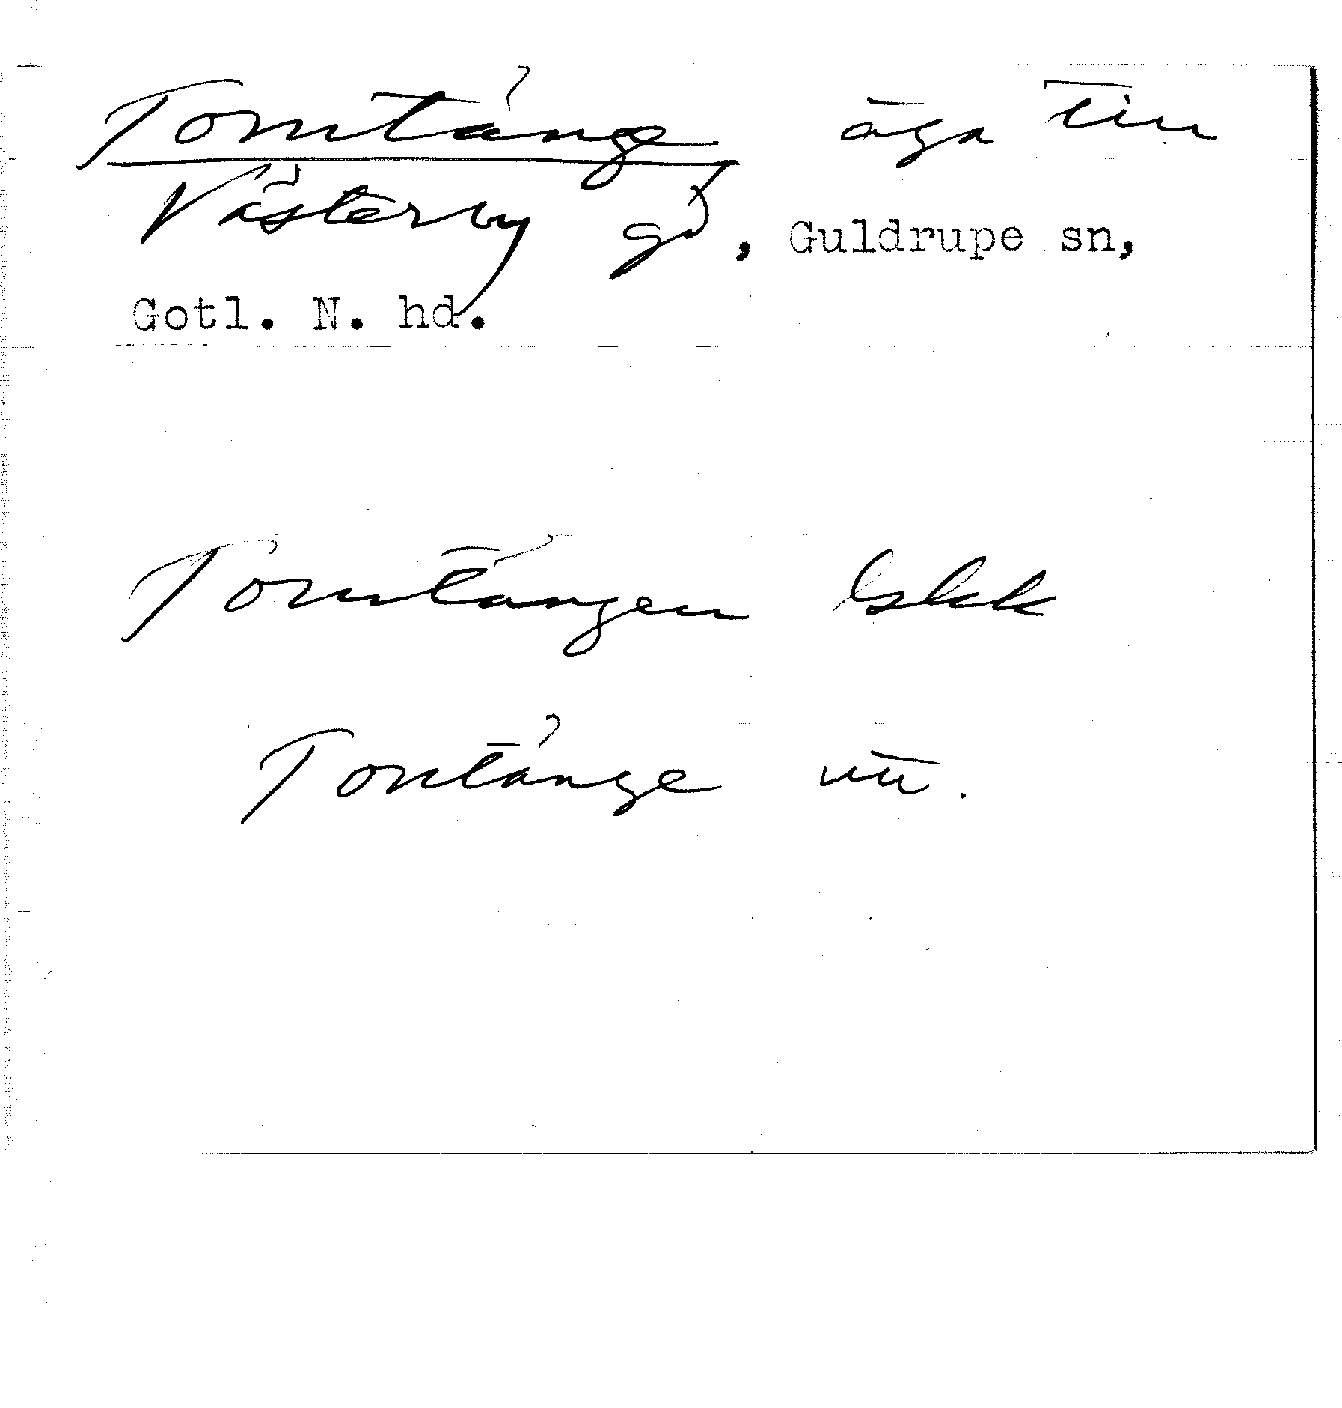 Tomtänge äga till
Västerby gd, Guldrupe sn,
Gotl. N. hd.
Tomtängen Eskk
Tontänge utt.